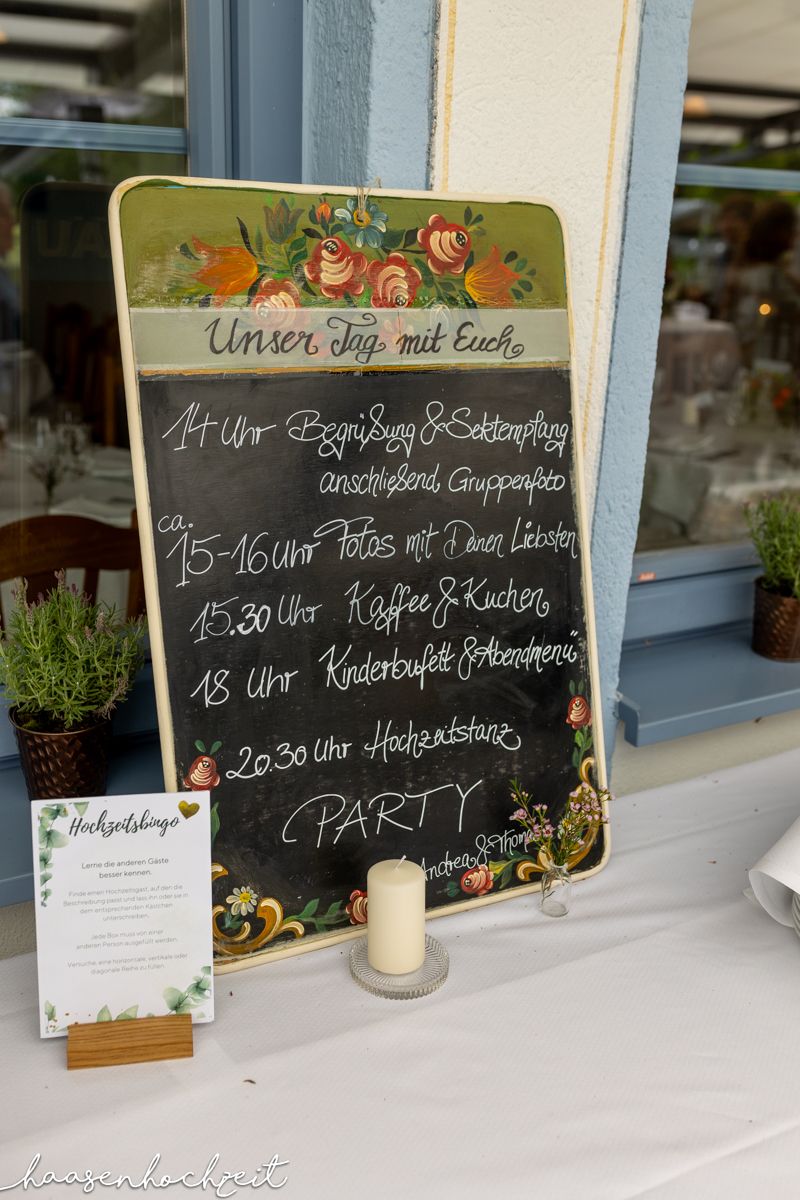 Unser Tag mit Euch
14 Uhr Begrüßung & Sektempfang
anschließend Gruppenfoto
ca.
15-16 Uhr Fotos mit Deinen Liebsten
15.30 Uhr Kaffee & Kuchen
18 Uhr Kinderbufett & Abendmenü
20.30 Uhr Hochzeitstanz
PARTY
Andrea &
Hochzeitsbingo
Lerne die anderen Gäste
besser kennen.
Finde einen Hochzeitsgast, auf den die
Beschreibung passt und lass ihn oder sie in
dem entsprechenden Kästchen
unterschreiben.
Jede Box muss von einer
anderen Person ausgefüllt werden.
Versuche, eine horizontale, vertikale oder
diagonale Reihe zu füllen.
haasenhochzeit